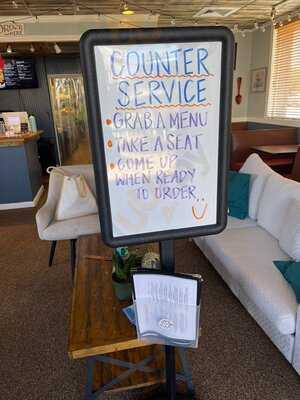 COUNTER
SERVICE
• GRAB A MENU
• TAKE A SEAT
• COME UP
WHEN READY
TO ORDER